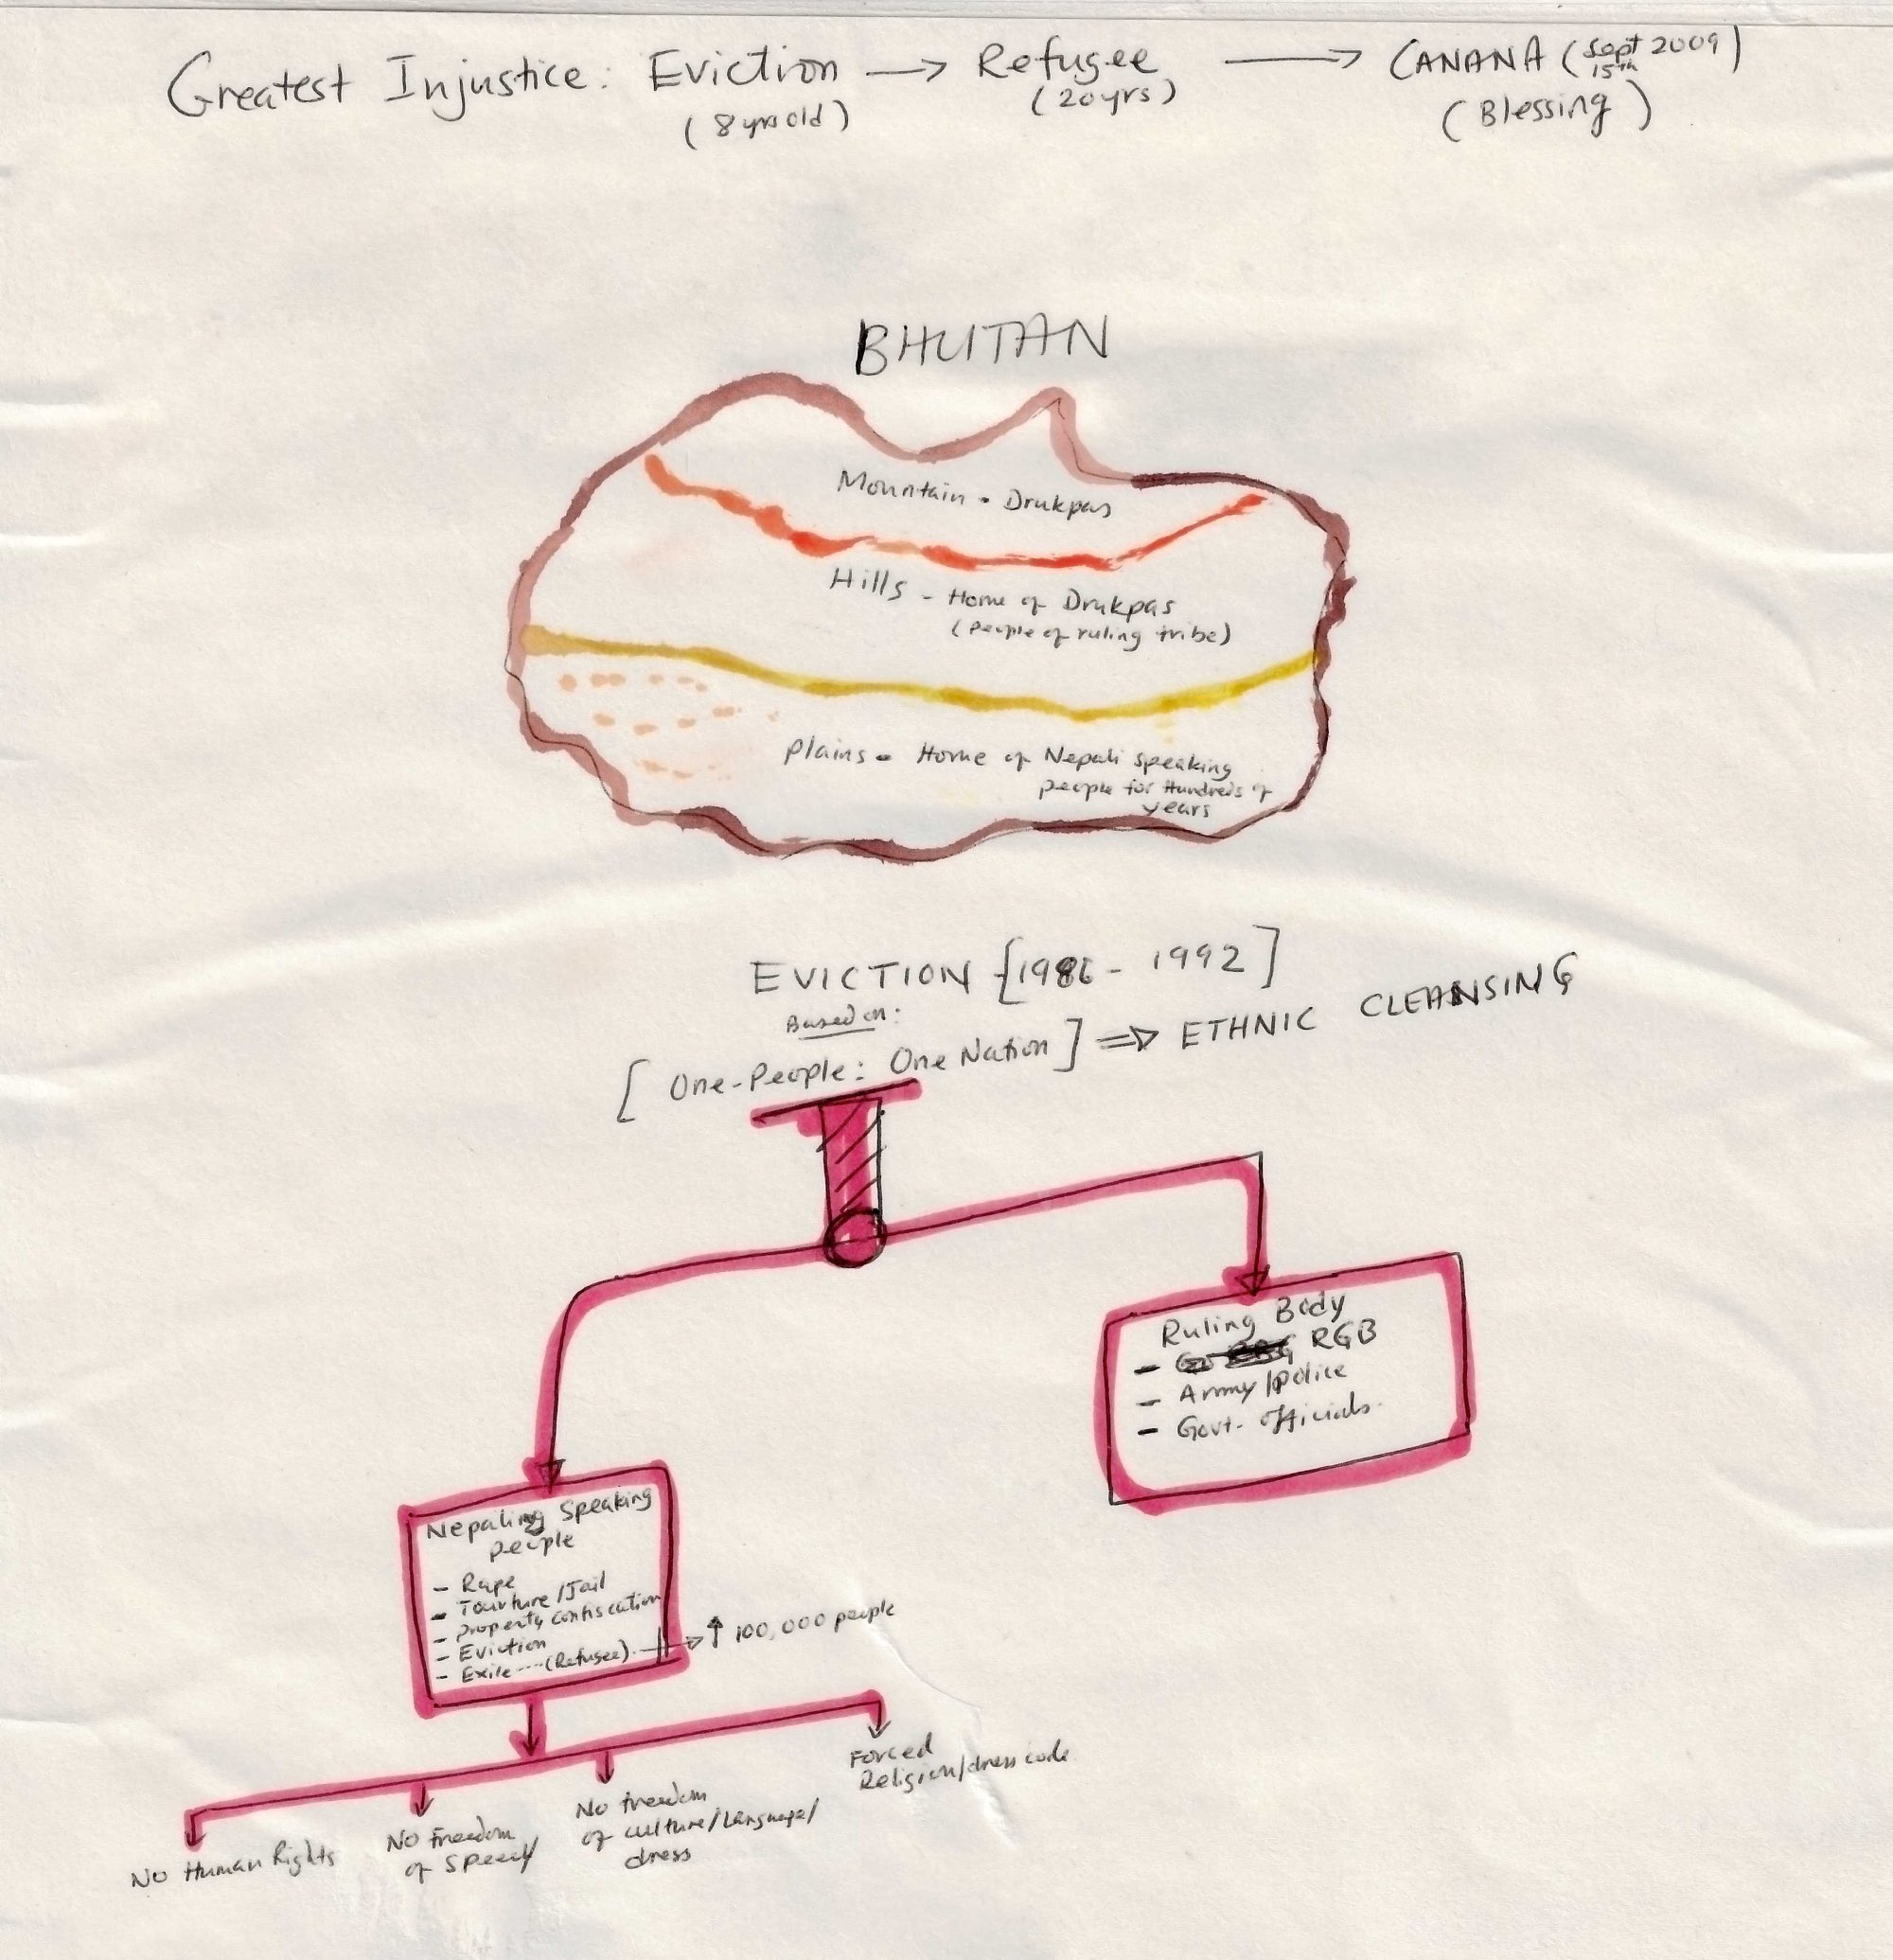 Greatest Injustice: Eviction → Refugee → CANANA (Sept 15th 2009)
(8 yrs old) (20 yrs) (Blessing)
BHUTAN
Mountain - Drukpas
Hills - Home of Drukpas
(people of ruling tribe)
Plains - Home of Nepali speaking
people for Hundreds of
years
EVICTION [1986 - 1992]
Based on:
[One-People: One Nation] ⇒ ETHNIC CLEANSING
Ruling Body
- RGB
- Army/police
- Govt. officials.
Nepaling Speaking
people
- Rape
- Tourture/Jail
- property confiscation
- Eviction
- Exile ---(Refugee). → ↑ 100,000 people
No Human Rights
No freedom
of speech
No freedom
of culture/Language/
dress
Forced
Religion/dress code